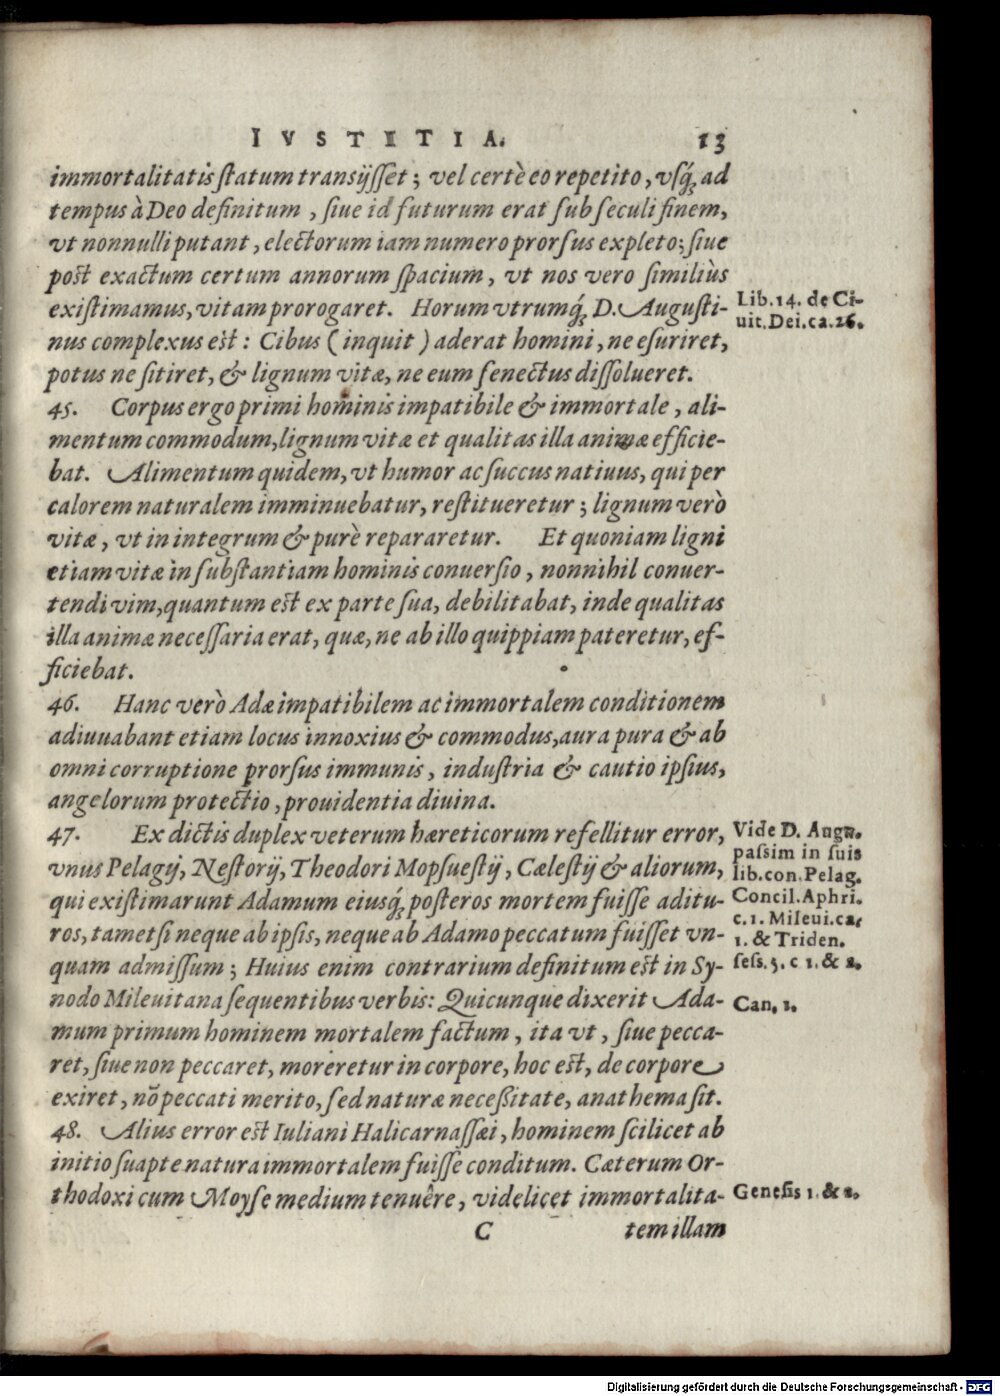 IVSTITIA. 13
immortalitatis ſtatum transijſſet; vel certè eo repetito, vſq́; ad
tempus à Deo definitum, ſiue id futurum erat ſub ſeculi finem,
vt nonnulli putant, electorum iam numero prorſus expleto; ſiue
poſt exactum certum annorum ſpacium, vt nos vero ſimiliùs
exiſtimamus, vitam prorogaret. Horum vtrumq́; D. Auguſti-
Lib. 14. de Ci-
uit. Dei. ca. 26.
nus complexus eſt: Cibus (inquit) aderat homini, ne eſuriret,
potus ne ſitiret, & lignum vitæ, ne eum ſenectus diſſolueret.
45. Corpus ergo primi hominis impatibile & immortale, ali-
mentum commodum, lignum vitæ et qualitas illa animæ efficie-
bat. Alimentum quidem, vt humor ac ſuccus natiuus, qui per
calorem naturalem imminuebatur, reſtitueretur; lignum verò
vitæ, vt in integrum & purè repararetur. Et quoniam ligni
etiam vitæ in ſubſtantiam hominis conuerſio, nonnihil conuer-
tendi vim, quantum eſt ex parte ſua, debilitabat, inde qualitas
illa animæ neceſſaria erat, quæ, ne ab illo quippiam pateretur, ef-
ficiebat.
46. Hanc verò Adæ impatibilem ac immortalem conditionem
adiuuabant etiam locus innoxius & commodus, aura pura & ab
omni corruptione prorſus immunis, induſtria & cautio ipſius,
angelorum protectio, prouidentia diuina.
47. Ex dictis duplex veterum hæreticorum refellitur error,
vnius Pelagij, Neſtorij, Theodori Mopſueſtij, Cæleſtij & aliorum,
qui exiſtimarunt Adamum eiusq́; poſteros mortem fuiſſe aditu-
ros, tametſi neque ab ipſis, neque ab Adamo peccatum fuiſſet vn-
quam admiſſum; Huius enim contrarium definitum eſt in Sy-
Vide D. Aug.
paſsim in ſuis
lib. con. Pelag.
Concil. Aphri.
c. 1. Mileui. ca.
1. & Triden.
ſeſs. 5. c 1. & 2.
nodo Mileuitana ſequentibus verbis: Quicunque dixerit Ada-
Can. 1.
mum primum hominem mortalem factum, ita vt, ſiue pecca-
ret, ſiue non peccaret, moreretur in corpore, hoc eſt, de corpore
exiret, nō peccati merito, ſed naturæ neceßitate, anathema ſit.
48. Alius error eſt Iuliani Halicarnaſſæi, hominem ſcilicet ab
initio ſuapte natura immortalem fuiſſe conditum. Cæterum Or-
thodoxi cum Moyſe medium tenuêre, videlicet immortalita-
Geneſis 1. & 2.
C temillam
Digitalisierung gefördert durch die Deutsche Forschungsgemeinschaft - DFG